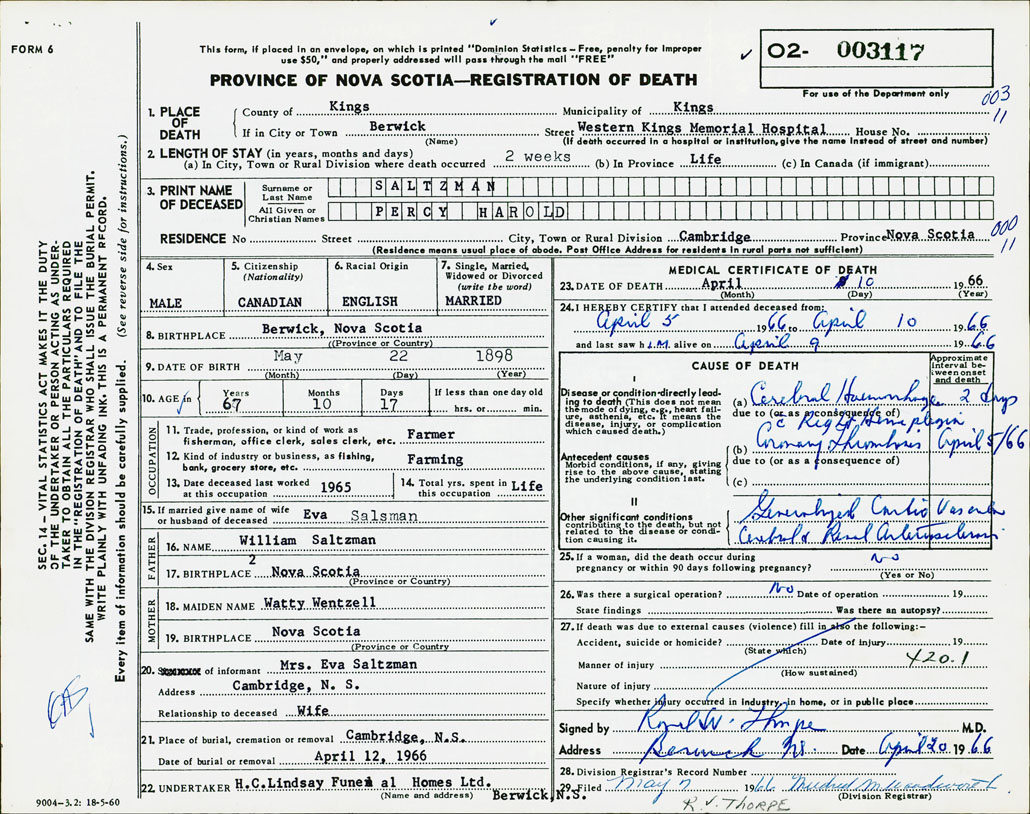 FORM 6
This form, if placed in an envelope, on which is printed "Dominion Statistics – Free, penalty for improper
use $50," and properly addressed will pass through the mail "FREE"
✓ O2- 003117
PROVINCE OF NOVA SCOTIA—REGISTRATION OF DEATH
For use of the Department only
003
11
1. PLACE OF DEATH
County of Kings Municipality of Kings
If in City or Town Berwick Street Western Kings Memorial Hospital House No.
(Name) (If death occurred in a hospital or institution, give the name instead of street and number)
2. LENGTH OF STAY (in years, months and days)
(a) In City, Town or Rural Division where death occurred 2 weeks (b) In Province Life (c) In Canada (if immigrant)
3. PRINT NAME OF DECEASED
Surname or Last Name SALTZMAN
All Given or Christian Names PERCY HAROLD
000
11
RESIDENCE No Street City, Town or Rural Division Cambridge Province Nova Scotia
(Residence means usual place of abode. Post Office Address for residents in rural parts not sufficient)
4. Sex
MALE
5. Citizenship
(Nationality)
CANADIAN
6. Racial Origin
ENGLISH
7. Single, Married,
Widowed or Divorced
(write the word)
MARRIED
8. BIRTHPLACE Berwick, Nova Scotia
((Province or Country)
9. DATE OF BIRTH May 22 1898
(Month) (Day) (Year)
10. AGE in Years Months Days If less than one day old
67 10 17 hrs. or min.
OCCUPATION
11. Trade, profession, or kind of work as
fisherman, office clerk, sales clerk, etc. Farmer
12. Kind of industry or business, as fishing,
bank, grocery store, etc. Farming
13. Date deceased last worked
at this occupation 1965
14. Total yrs. spent in
this occupation Life
15. If married give name of wife
or husband of deceased Eva Salsman
FATHER
16. NAME William Saltzman
2
17. BIRTHPLACE Nova Scotia
(Province or Country)
MOTHER
18. MAIDEN NAME Watty Wentzell
19. BIRTHPLACE Nova Scotia
(Province or Country
20. of informant Mrs. Eva Saltzman
Address Cambridge, N. S.
Relationship to deceased Wife
21. Place of burial, cremation or removal Cambridge, N.S.
Date of burial or removal April 12, 1966
22. UNDERTAKER H.C.Lindsay Funeral Homes Ltd.
(Name and address) Berwick,N.S.
MEDICAL CERTIFICATE OF DEATH
23. DATE OF DEATH April 10 1966
(Month) (Day) (Year)
24. I HEREBY CERTIFY that I attended deceased from:
April 5 1966 to April 10 1966
and last saw h im alive on April 9 1966
CAUSE OF DEATH
Approximate
interval be-
tween onset
and death
I
Disease or condition directly lead-
ing to death (This does not mean
the mode of dying, e.g., heart fail-
ure, asthenia, etc. It means the
disease, injury, or complication
which caused death.)
(a) Cerebral Haemorrhage 2 days
due to (or as a consequence of)
c Right Hemiplegia
(b) Coronary Thrombosis April 5/66
Antecedent causes
Morbid conditions, if any, giving
rise to the above cause, stating
the underlying condition last.
due to (or as a consequence of)
(c)
II
Other significant conditions
contributing to the death, but not
related to the disease or condi-
tion causing it.
Generalized Cardio Vascular
Cerebral & Renal Arteriosclerosis
25. If a woman, did the death occur during
pregnancy or within 90 days following pregnancy? No
(Yes or No)
26. Was there a surgical operation? No Date of operation 19
State findings Was there an autopsy?
27. If death was due to external causes (violence) fill in also the following:—
Accident, suicide or homicide? Date of injury 19
(State which)
Manner of injury 420.1
(How sustained)
Nature of injury
Specify whether injury occurred in industry, in home, or in public place
Signed by Ronal W. Thorpe M.D.
Address Berwick NS. Date April 20 1966
28. Division Registrar's Record Number
29. Filed May 7 1966 Mildred M Woodworth
(Division Registrar)
R.V. THORPE
9004-3.2: 18-5-60
SEC. 14 – VITAL STATISTICS ACT MAKES IT THE DUTY
OF THE UNDERTAKER OR PERSON ACTING AS UNDER-
TAKER TO OBTAIN ALL THE PARTICULARS REQUIRED
IN THE "REGISTRATION OF DEATH" AND TO FILE THE
SAME WITH THE DIVISION REGISTRAR WHO SHALL ISSUE THE BURIAL PERMIT.
WRITE PLAINLY WITH UNFADING INK. THIS IS A PERMANENT RECORD.
Every item of information should be carefully supplied. (See reverse side for instructions.)